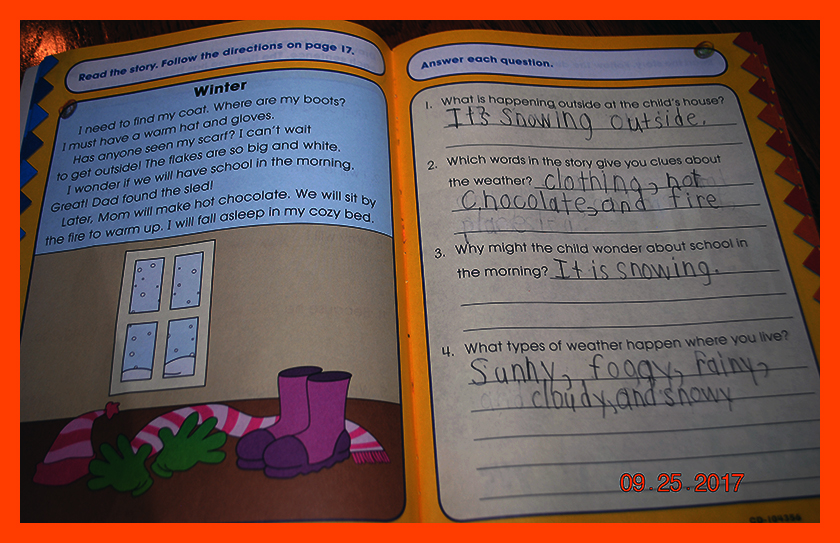 Read the story. Follow the directions on page 17.
Winter
I need to find my coat. Where are my boots?
I must have a warm hat and gloves.
Has anyone seen my scarf? I can't wait
to get outside! The flakes are so big and white.
I wonder if we will have school in the morning.
Great! Dad found the sled!
Later, Mom will make hot chocolate. We will sit by
the fire to warm up. I will fall asleep in my cozy bed.
Answer each question.
1. What is happening outside at the child's house?
It's Snowing outside.
2. Which words in the story give you clues about
the weather? clothing, hot
Chocolate, and fire
3. Why might the child wonder about school in
the morning? It is snowing.
4. What types of weather happen where you live?
Sunny, foggy, rainy,
cloudy, and snowy
09.25.2017